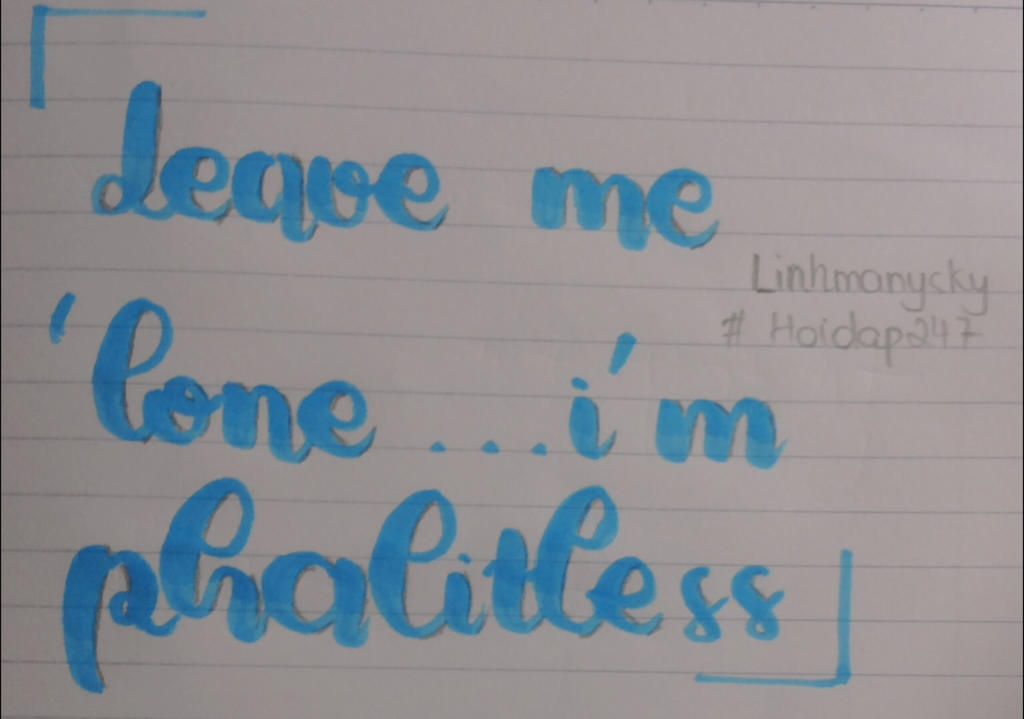 Leave me
Linhmanysky
# Hoidap247
'lone ... i'm
phalitless